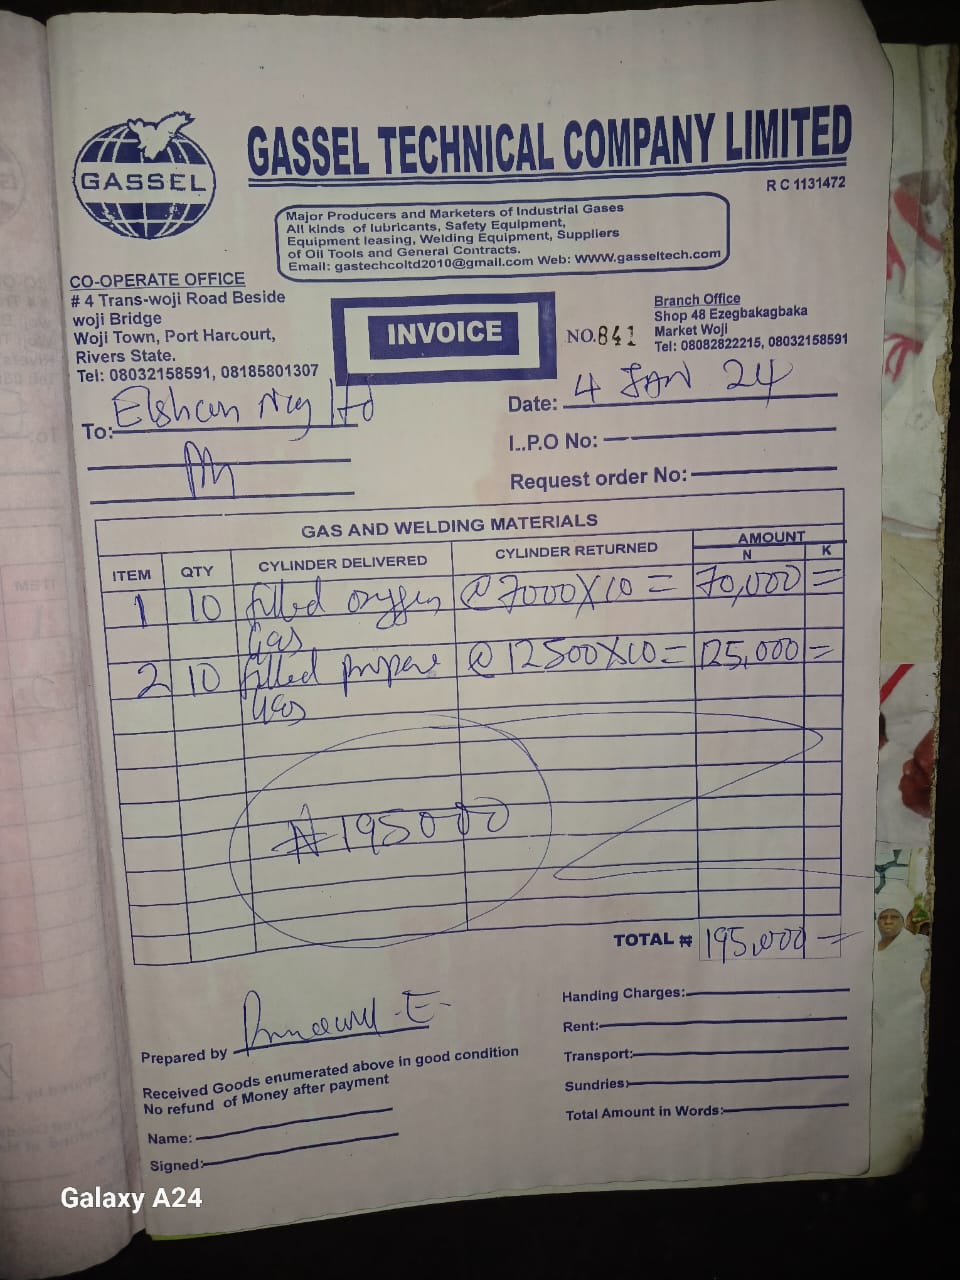 GASSEL
GASSEL TECHNICAL COMPANY LIMITED
R C 1131472
Major Producers and Marketers of Industrial Gases
All kinds of lubricants, Safety Equipment,
Equipment leasing, Welding Equipment, Suppliers
of Oil Tools and General Contracts.
Email: gastechcoltd2010@gmail.com Web: WWW.gasseltech.com
CO-OPERATE OFFICE
# 4 Trans-woji Road Beside
woji Bridge
Woji Town, Port Harcourt,
Rivers State.
Tel: 08032158591, 08185801307
INVOICE
NO. 841
Branch Office
Shop 48 Ezegbakagbaka
Market Woji
Tel: 08082822215, 08032158591
To: Elshcon Nig ltd
Date: 4 JAN 24
I..P.O No:
Request order No:
GAS AND WELDING MATERIALS
ITEM QTY CYLINDER DELIVERED CYLINDER RETURNED AMOUNT
N K
1 10 filled oxygen @ 7000 X 10 = 70,000 =
Gas
2 10 filled propane @ 12500 X 10 = 125,000 =
Gas
₦195000
TOTAL ₦ 195,000 =
Prepared by
Received Goods enumerated above in good condition
No refund of Money after payment
Name:
Signed:
Handing Charges:
Rent:
Transport:
Sundries:
Total Amount in Words:
Galaxy A24